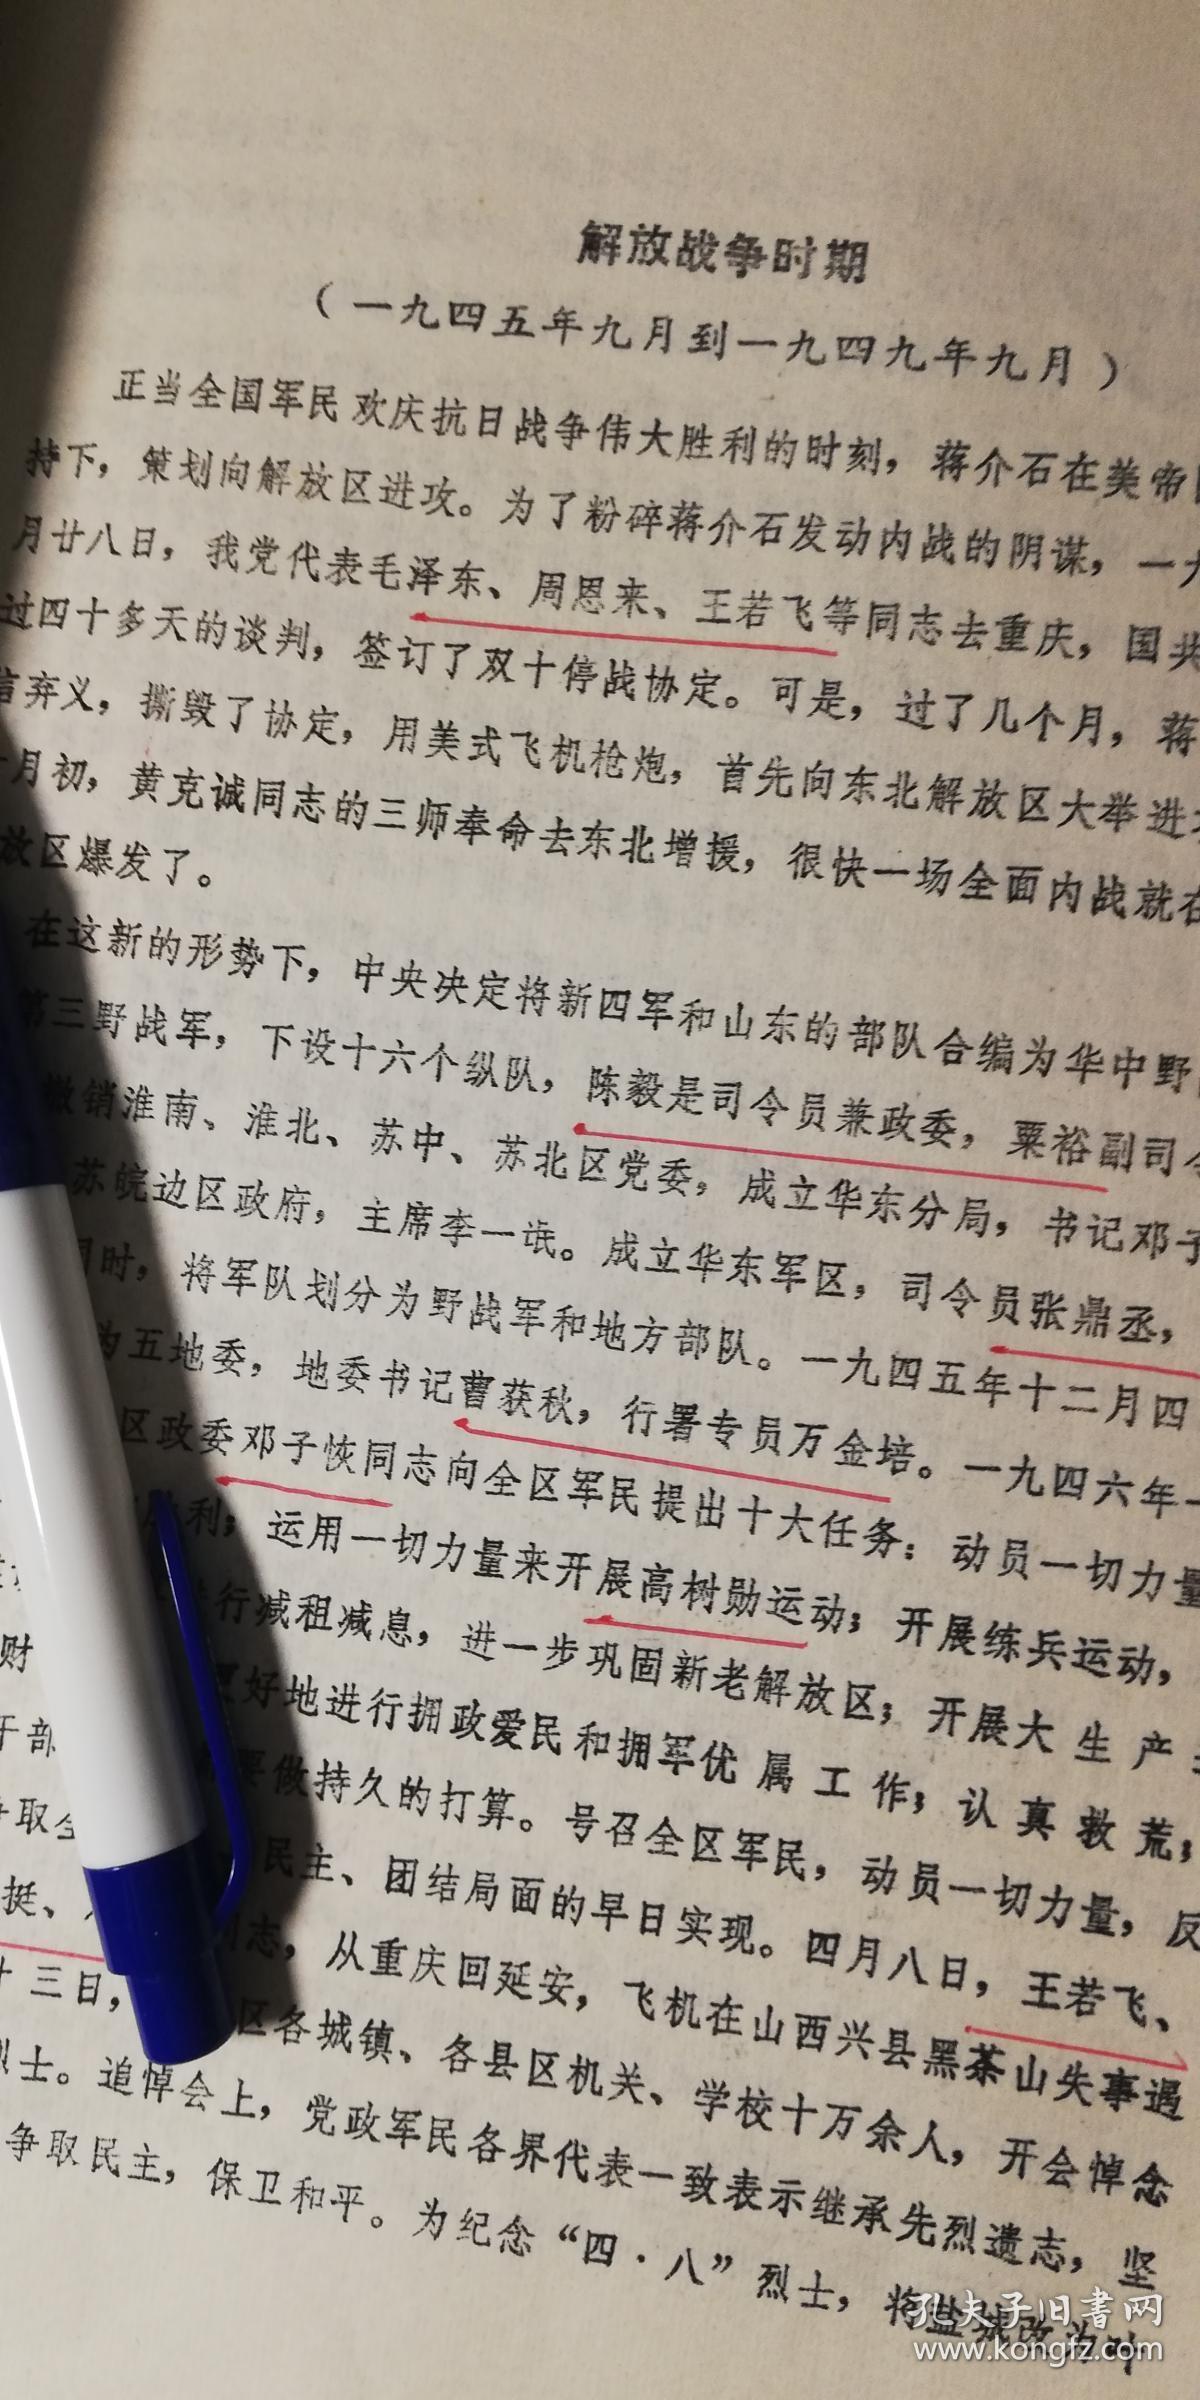 解放战争时期
（一九四五年九月到一九四九年九月）
正当全国军民欢庆抗日战争伟大胜利的时刻，蒋介石在美帝
持下，策划向解放区进攻。为了粉碎蒋介石发动内战的阴谋，一九
月廿八日，我党代表毛泽东、周恩来、王若飞等同志去重庆，国共
过四十多天的谈判，签订了双十停战协定。可是，过了几个月，蒋
信弃义，撕毁了协定，用美式飞机枪炮，首先向东北解放区大举进
月初，黄克诚同志的三师奉命去东北增援，很快一场全面内战就在
放区爆发了。
在这新的形势下，中央决定将新四军和山东的部队合编为华中野
第三野战军，下设十六个纵队，陈毅是司令员兼政委，粟裕副司令
撤销淮南、淮北、苏中、苏北区党委，成立华东分局，书记邓子
苏皖边区政府，主席李一氓。成立华东军区，司令员张鼎丞，
同时，将军队划分为野战军和地方部队。一九四五年十二月四
为五地委，地委书记曹荻秋，行署专员万金培。一九四六年一
区政委邓子恢同志向全区军民提出十大任务：动员一切力量
胜利；运用一切力量来开展高树勋运动；开展练兵运动，
行减租减息，进一步巩固新老解放区；开展大生产
财
更好地进行拥政爱民和拥军优属工作；认真救荒；
干部
要做持久的打算。号召全区军民，动员一切力量，反
争取全
民主、团结局面的早日实现。四月八日，王若飞、
挺、
同志，从重庆回延安，飞机在山西兴县黑茶山失事遇
十三日，
区各城镇、各县区机关、学校十万余人，开会悼念
烈士。追悼会上，党政军民各界代表一致表示继承先烈遗志，坚
争取民主，保卫和平。为纪念“四·八”烈士，将盐城改为叶
孔夫子旧书网
www.kongfz.com